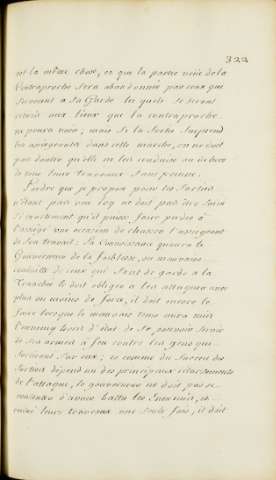 322
ont la même chose, et que la partie vüe de la
Contraproche sera abandonnée par ceux qui
servent a sa Garde les quels se seront
retirés aux lieux que la contraproche
ne pourra voir; mais si la sortie surprend
les assiégeants dans cette marche, on ne doit
pas douter qu'elle ne les conduise au delà
de tous leurs Travaux sans peine.
L'ordre que je propose pour les sorties
n'étant pas une loy ne doit pas être suivi
si exactement qu'il puisse faire perdre à
l'assiégé une occasion de chasser l'assiegeant
de son travail: la Connoissance qu'aura le
Gouverneur de la foiblesse, ou mauvaise
conduitte de ceux qui sont de garde a la
Tranchée le doit obliger a les attaquer avec
plus ou moins de force, il doit même le
faire lorsque le mauvais tems aura mis
l'ennemy hors d'état de se pouvoir servir
de ses armes à feu contre les gens qui
sortiront sur eux; et comme du succes des
sorties dépend un des principaux retardements
de l'attaque, le gouverneur ne doit pas se
contenter d'avoir battu les Ennemis, et
ruiné leurs travaux une seule fois; il doit